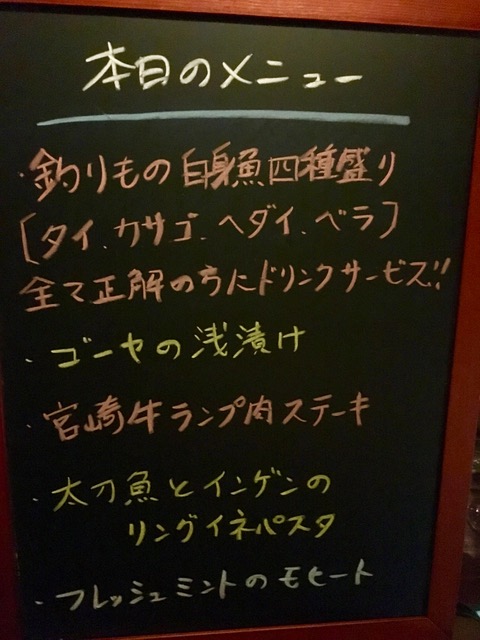 本日のメニュー
・釣りもの白身魚四種盛り
[タイ、カサゴ、ヘダイ、ベラ]
全て正解の方にドリンクサービス!!
・ゴーヤの浅漬け
・宮崎牛ランプ肉ステーキ
・太刀魚とインゲンの
リングイネパスタ
・フレッシュミントのモヒート